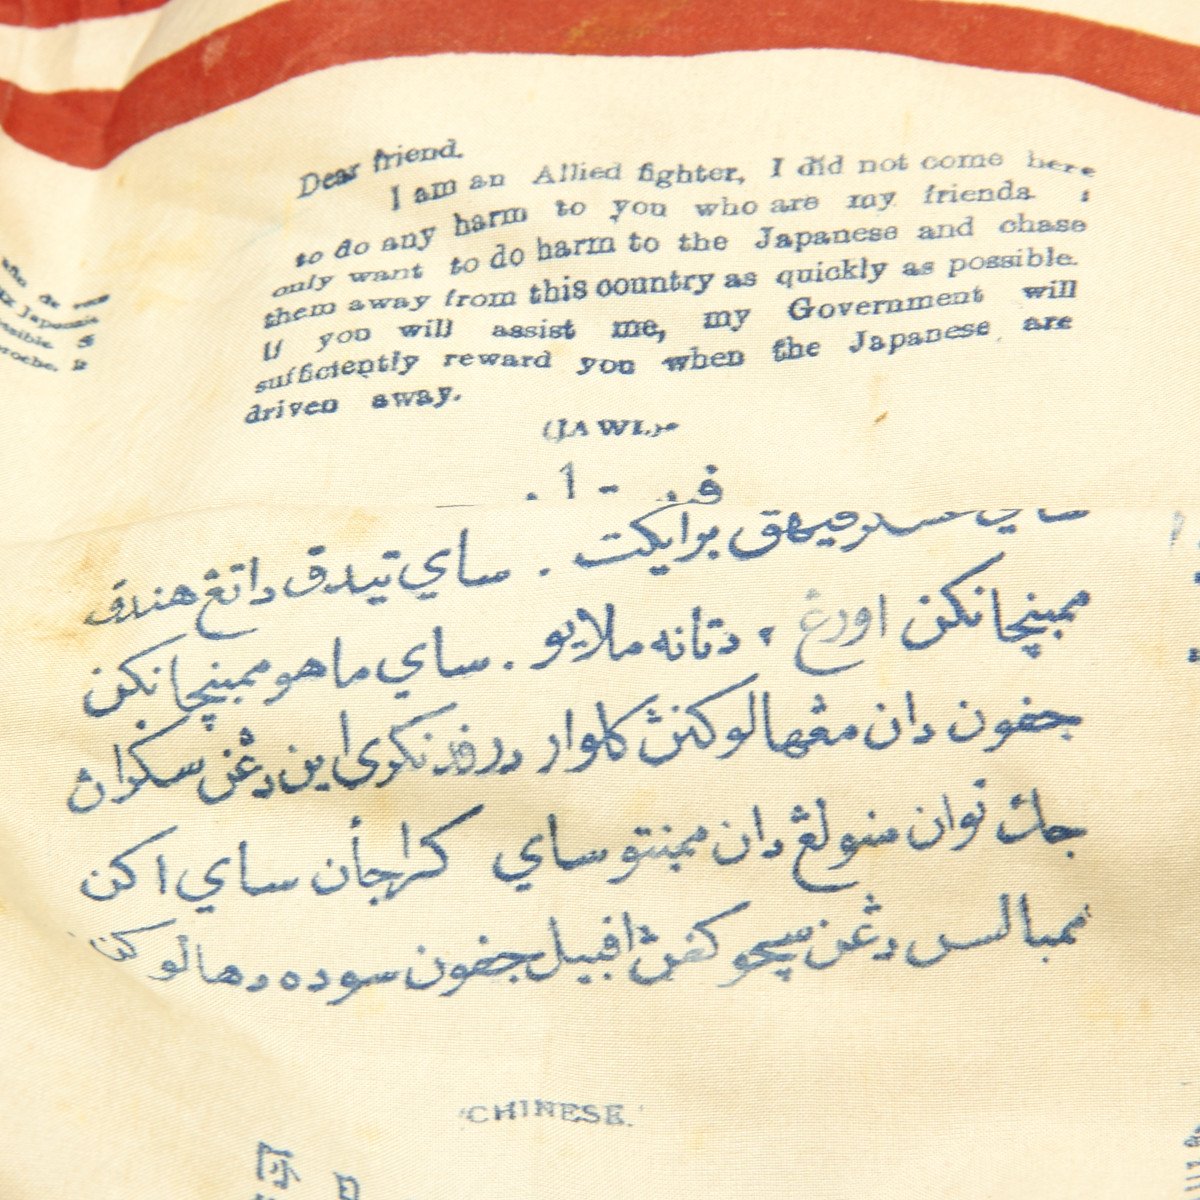 Dear friend.
I am an Allied fighter, I did not come here
to do any harm to you who are my friends
only want to do harm to the Japanese and chase
them away from this country as quickly as possible.
If you will assist me, my Government will
sufficiently reward you when the Japanese are
driven away.
(JAWI.)-
برايكت . ساي تيدق داتڠ هندق
ممبنچانكن اورڠ ٢ دتانه ملايو . ساي ماهو ممبنچانكن
جڤون دان مڠهالوكنڽ كلوار درڤد نكري اين دڠن سكراڽ
جك توان منولڠ دان ممبنتو ساي كراجأن ساي اكن
ممبالس دڠن سچوكفڽ اڤبيل جڤون سوده دهالوكن
'CHINESE.'